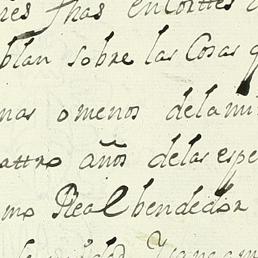 fhas en Corttes
blan sobre las Cosas q
nas o menos dela mi
attro años delas espe
mo Real bendedor